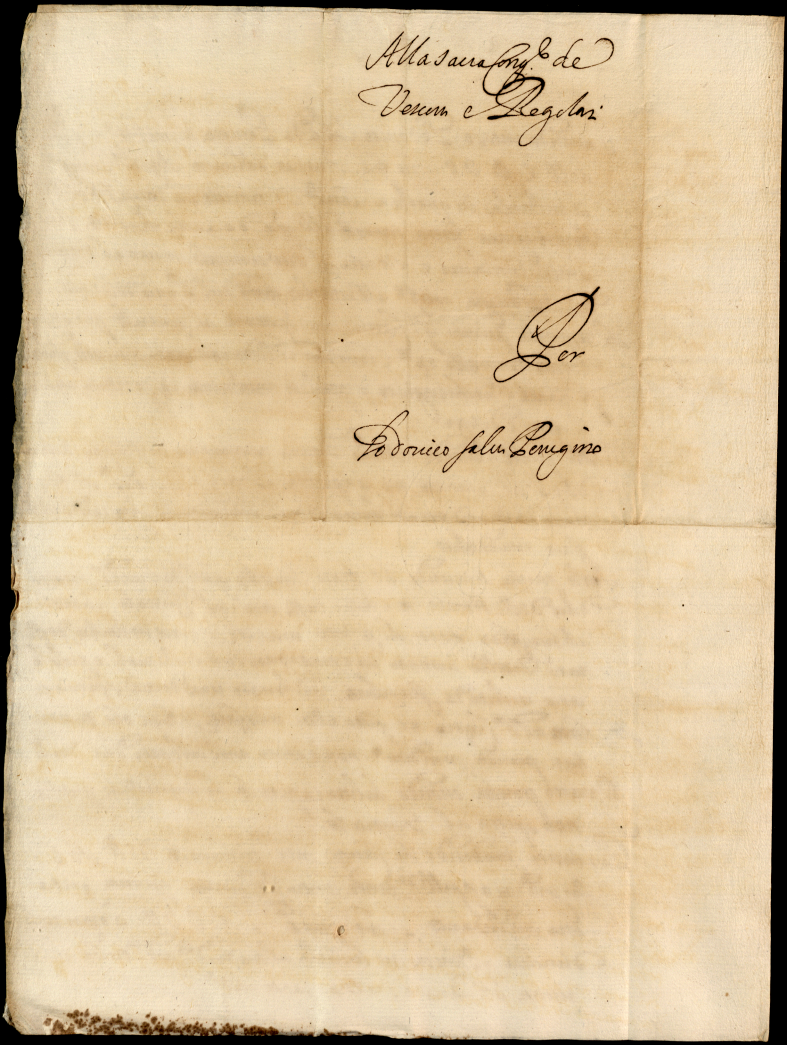 Alla sacra Cong.e de
Vescoui e Regolari
Per
Lodouico Perugino